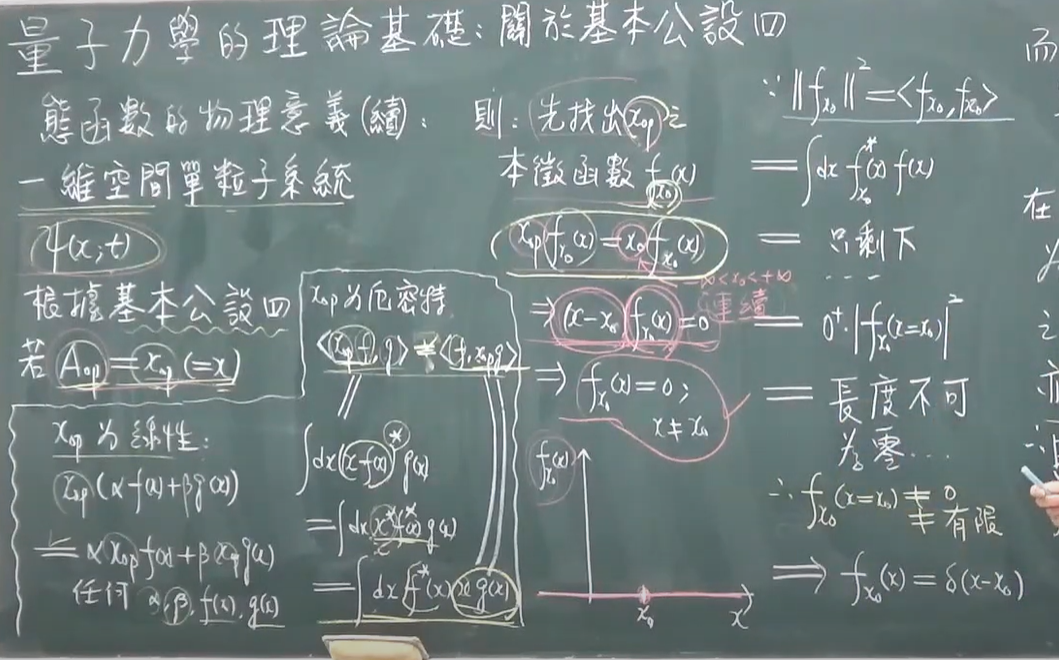 量子力學的理論基礎：關於基本公設四
態函數的物理意義(續)：
一維空間單粒子系統
ψ(x,t)
根據基本公設四
若 A_op = x_op (=x)
x_op 為線性：
x_op (αf(x)+βg(x))
= αx_op f(x)+βx_op g(x)
任何 α,β,f(x),g(x)
x_op 為厄密特
<x_op f, g> = <f, x_op g>
∫dx(x f(x))* g(x)
= ∫dx x* f*(x) g(x)
= ∫dx f*(x) x g(x)
則：先找出 x_op 之
本徵函數 f_x₀(x)
x_op f_x₀(x) = x₀ f_x₀(x)
-∞<x₀<+∞
連續
⇒ (x-x₀) f_x₀(x) = 0
⇒ f_x₀(x) = 0；
x ≠ x₀
f_x₀(x)
x₀
x
∵ ‖f_x₀‖² = <f_x₀, f_x₀>
= ∫dx f*_x₀(x) f(x)
= 只剩下
....
= 0⁺·|f_x₀(x=x₀)|²
= 長度不可
為零...
∴ f_x₀(x=x₀) ≠ 0
≠ 有限
⇒ f_x₀(x) = δ(x-x₀)
而
在
之